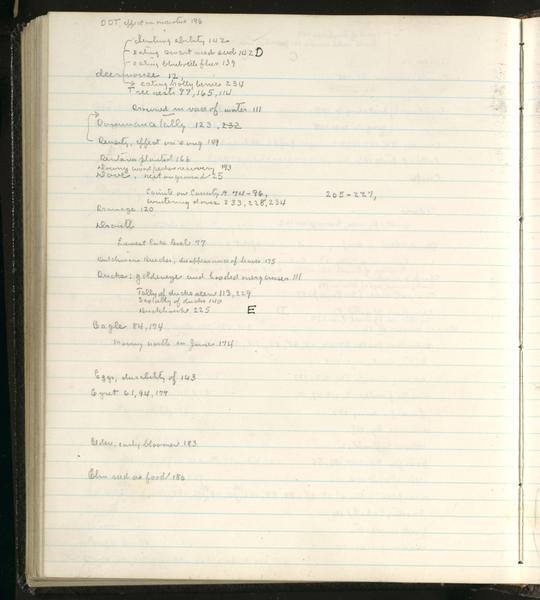 DDT, effect on nesting 196
climbing ability 142
eating smart weed seed 142 D
eating bluebottle flies 139
deermouse 12,
eating holly berries 234
Tree nests 77, 165, 114
Drowned in vase of water 111
Dominance tally 123, 232
Density, effect on 149
Dentaria planted 168
Downy woodpecker recovery 193
Dove, nest on ground 25
Counts on County A 74-96, 205-227,
wintering doves 233, 228, 234
Drainage 120
Drouth
Lowest lake level 77
Dutchmans Breeches, disappearance of leaves 175
Ducks; goldeneye and hooded merganser 111
Tally of ducks seen 113, 229
Sex tally of ducks 140
Duckhawk 225
E
Eagle 84, 174
Moving north in June 174
Eggs, durability of 143
Egret 61, 94, 177
Elder, early bloomer 183
Elm seed as food 180